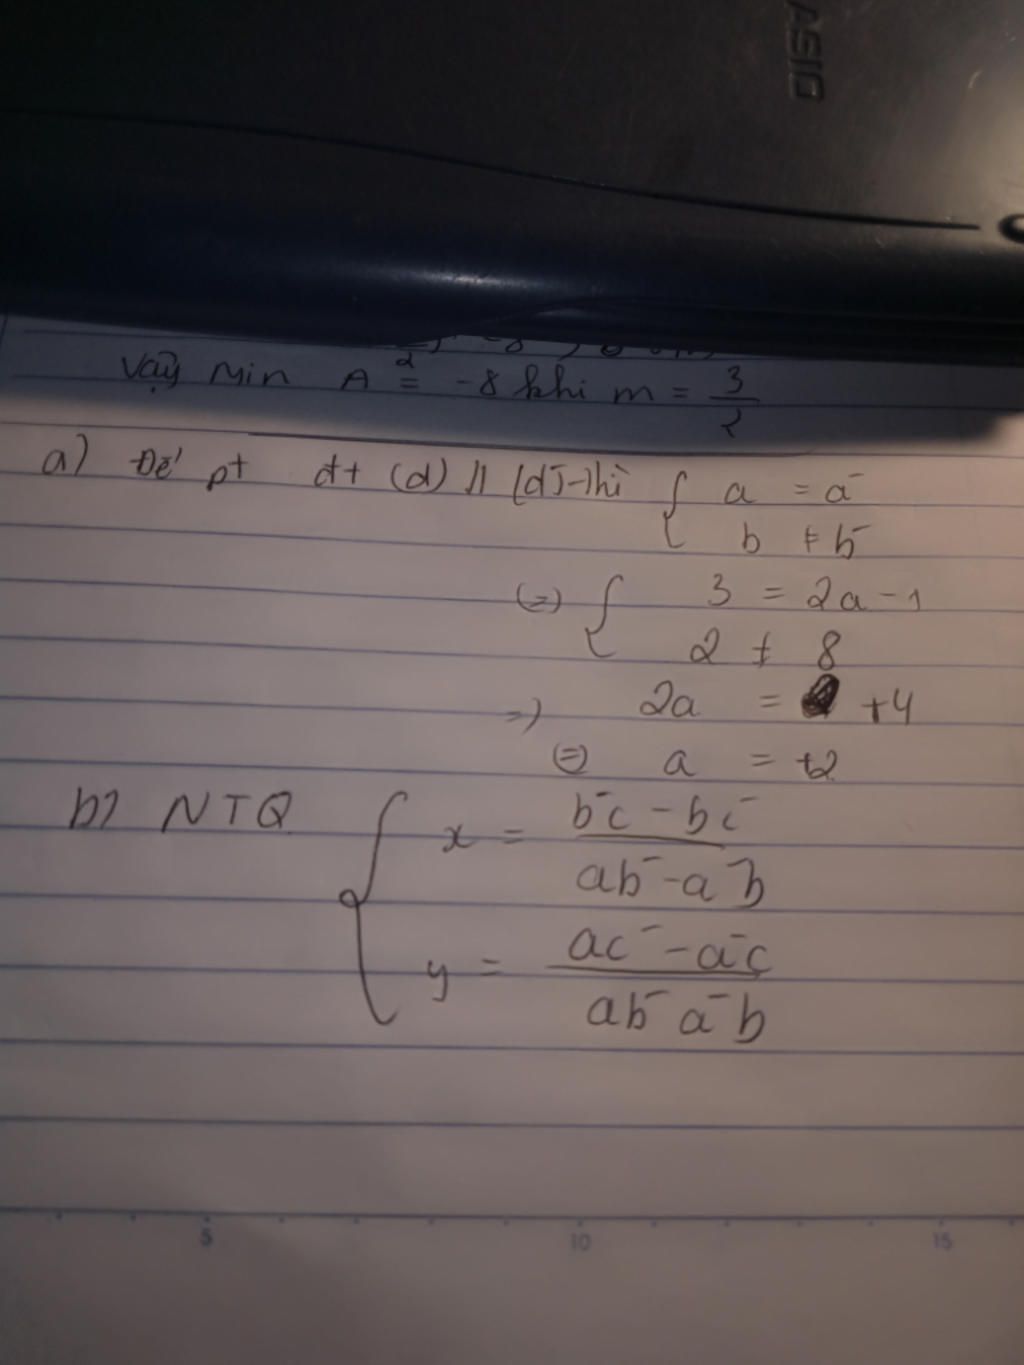 ASIO
Vậy Min A = -8 khi m = 3/2
a) Để pt dt (d) // (d') thì { a = a'
b ≠ b'
(=) { 3 = 2a - 1
2 ≠ 8
=) 2a = +4
(=) a = +2
b) NTQ { x = b'c - bc' / ab' - a'b
y = ac' - a'c / ab' a'b
5 10 15